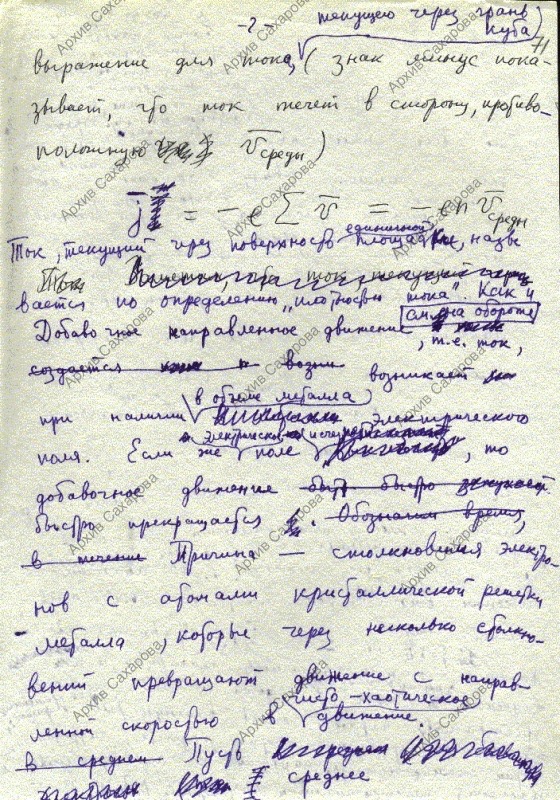 -2
текущего через грань
куба)
71
выражение для тока, (знак минус пока-
зывает, что ток течет в сторону, противо-
положную v̅ среды)
j̅ = -e Σ v̅ = -en v̅ среды
Ток, текущий через поверхность единичной площадки, назы
вается по определению „плотностью тока". Как и
см. на обороте
Добавочное направленное движение, т.е. ток,
создается возникает
при наличии в объеме металла электрического
поля. Если же электрическое поле, то
добавочное движение быстро
быстро прекращается. Обозначим время,
в течение Причина — столкновения электро-
нов с атомами кристаллической решетки
металла, которые через несколько столкно-
вений превращают движение с направ-
ленной скоростью в чисто-хаотическое движение.
в среднем Пусть
среднее
Архив Сахарова